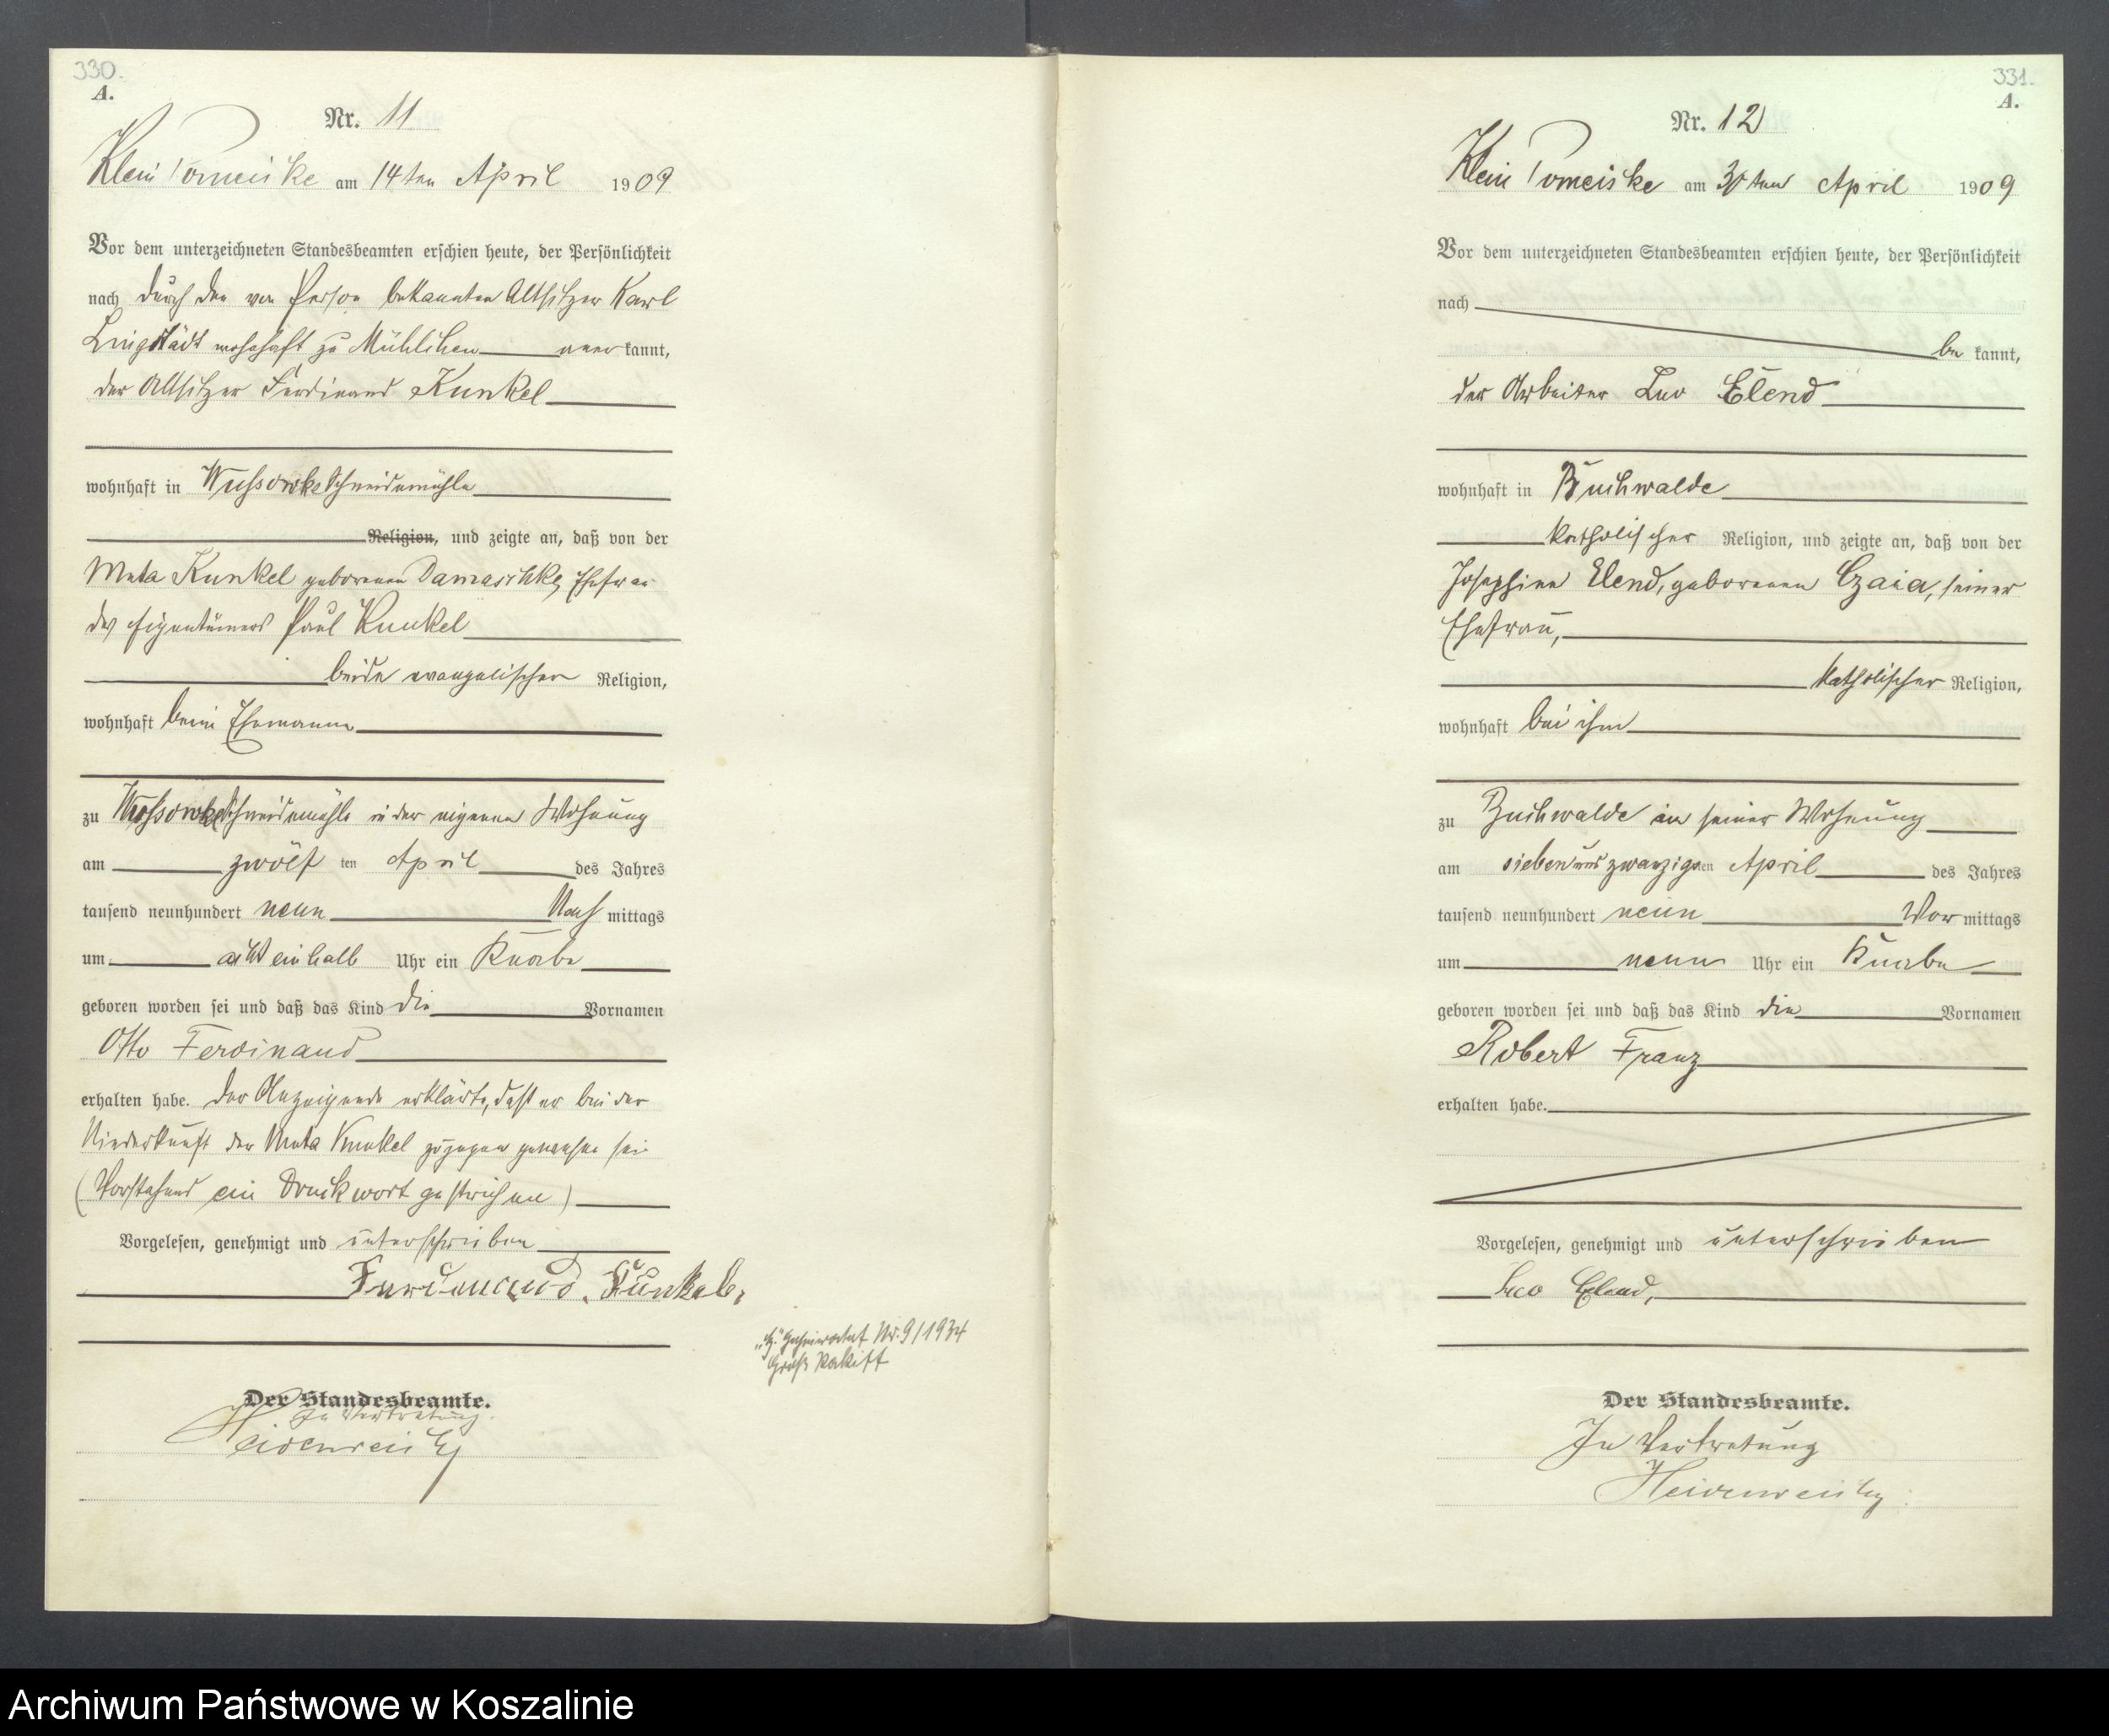 330.
A.
Nr. 11
Klein Pomeiske am 14ten April 1909
Vor dem unterzeichneten Standesbeamten erschien heute, der Persönlichkeit
nach durch den von Person bekannten Altsitzer Karl
Lingstädt wohnhaft zu Mühlchen aner kannt,
der Altsitzer Ferdinand Kunkel
wohnhaft in Wussowke Schneidemühle
Religion, und zeigte an, daß von der
Meta Kunkel geborenen Damaschke, Ehefrau
des Eigentümers Paul Kunkel
beide evangelischer Religion,
wohnhaft beim Ehemanne
zu Wussowke Schneidemühle in der eigenen Wohnung
am zwölf ten April des Jahres
tausend neunhundert neun Nach mittags
um acht einhalb Uhr ein Knabe
geboren worden sei und daß das Kind die Vornamen
Otto Ferdinand
erhalten habe. Der Anzeigende erklärte, daß er bei der
Niederkunft der Meta Kunkel zugegen gewesen sei
(Vorstehend ein Druckwort gestrichen)
Vorgelesen, genehmigt und unterschrieben
Ferdinand Kunkel
"H." Geheiratet Nr. 9/1934
Groß Rakitt
Der Standesbeamte.
In Vertretung.
Heidenreich
331.
A.
Nr. 12
Klein Pomeiske am 30ten April 1909
Vor dem unterzeichneten Standesbeamten erschien heute, der Persönlichkeit
nach
be kannt,
der Arbeiter Leo Elend
wohnhaft in Buchwalde
katholischer Religion, und zeigte an, daß von der
Josephine Elend, geborenen Czaia, seiner
Ehefrau,
katholischer Religion,
wohnhaft bei ihm
zu Buchwalde in seiner Wohnung
am siebenundzwanzigsten April des Jahres
tausend neunhundert neun Vor mittags
um neun Uhr ein Knabe
geboren worden sei und daß das Kind die Vornamen
Robert Franz
erhalten habe.
Vorgelesen, genehmigt und unterschrieben
Leo Elend,
Der Standesbeamte.
In Vertretung
Heidenreich
Archiwum Państwowe w Koszalinie